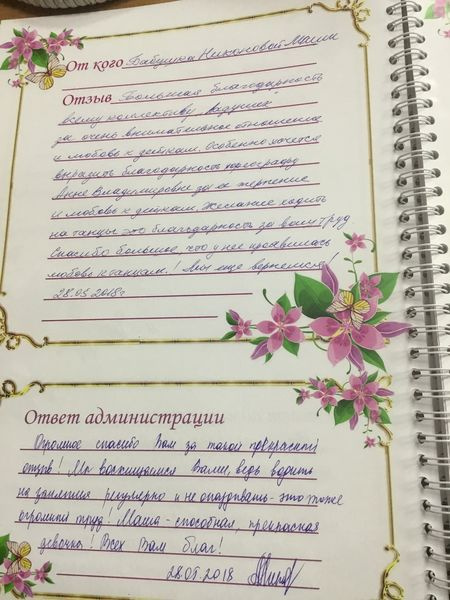 От кого Бабушка Никоновой Маши
Отзыв Большая благодарность
всему коллективу ведущих
за очень внимательное отношение
и любовь к деткам. Особенно хочется
выразить благодарность хореографу
Анне Владимировне за ее терпение
и любовь к деткам. Желание ходить
на танцы это благодарность за ваш труд
Спасибо большое, что у нее проявилась
любовь к танцам! Мы еще вернемся!
28.05.2018г
Ответ администрации
Огромное спасибо Вам за такой прекрасный
отзыв! Мы восхищаемся Вами, ведь водить
на занятия регулярно и не опаздывать - это тоже
огромный труд! Маша - способная, прекрасная
девочка! Всех Вам благ!
28.05.2018